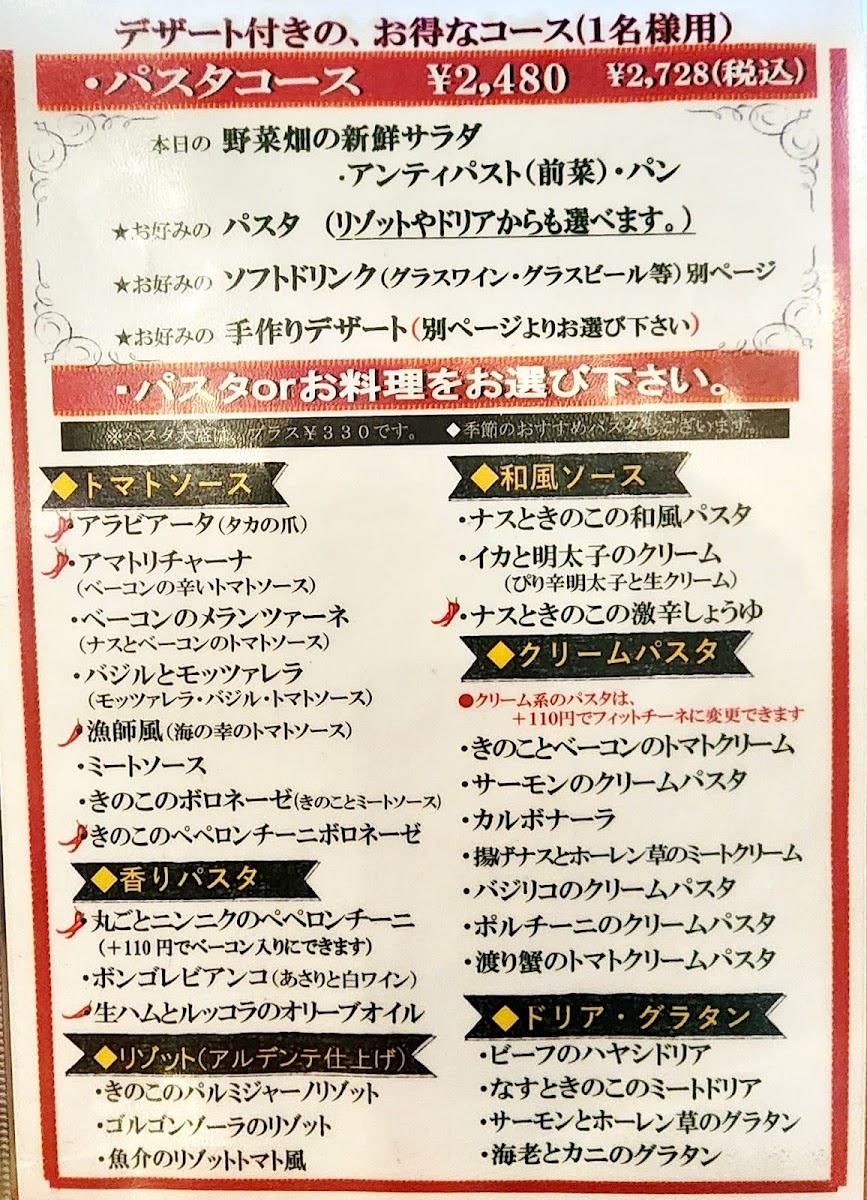 デザート付きの、お得なコース(1名様用)
・パスタコース ¥2,480 ¥2,728(税込)
本日の 野菜畑の新鮮サラダ
・アンティパスト(前菜)・パン
★お好みの パスタ (リゾットやドリアからも選べます。)
★お好みの ソフトドリンク(グラスワイン・グラスビール等)別ページ
★お好みの 手作りデザート(別ページよりお選び下さい)
・パスタorお料理をお選び下さい。
※パスタ大盛は、プラス¥330です。 ◆季節のおすすめパスタもございます。
◆トマトソース
・アラビアータ(タカの爪)
・アマトリチャーナ
(ベーコンの辛いトマトソース)
・ベーコンのメランツァーネ
(ナスとベーコンのトマトソース)
・バジルとモッツァレラ
(モッツァレラ・バジル・トマトソース)
漁師風(海の幸のトマトソース)
・ミートソース
・きのこのボロネーゼ(きのことミートソース)
きのこのペペロンチーニボロネーゼ
◆香りパスタ
丸ごとニンニクのペペロンチーニ
(+110円でベーコン入りにできます)
・ボンゴレビアンコ(あさりと白ワイン)
・生ハムとルッコラのオリーブオイル
◆リゾット(アルデンテ仕上げ)
・きのこのパルミジャーノリゾット
・ゴルゴンゾーラのリゾット
・魚介のリゾットトマト風
◆和風ソース
・ナスときのこの和風パスタ
・イカと明太子のクリーム
(ぴり辛明太子と生クリーム)
・ナスときのこの激辛しょうゆ
◆クリームパスタ
●クリーム系のパスタは、
+110円でフィットチーネに変更できます
・きのことベーコンのトマトクリーム
・サーモンのクリームパスタ
・カルボナーラ
・揚げナスとホーレン草のミートクリーム
・バジリコのクリームパスタ
・ポルチーニのクリームパスタ
・渡り蟹のトマトクリームパスタ
◆ドリア・グラタン
・ビーフのハヤシドリア
・なすときのこのミートドリア
・サーモンとホーレン草のグラタン
・海老とカニのグラタン